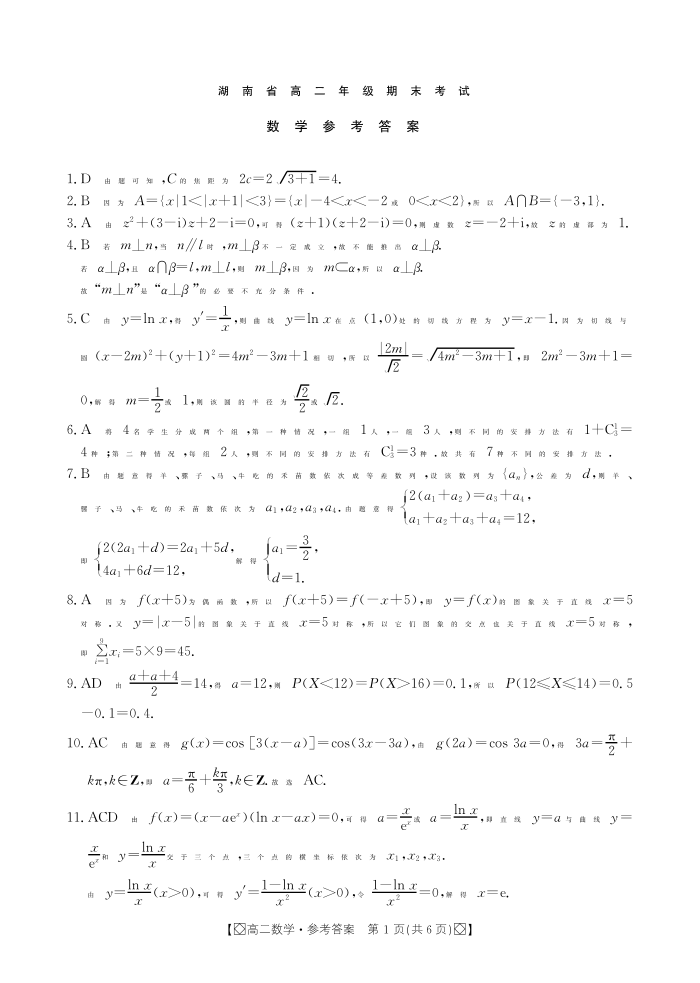 湖南省高二年级期末考试
数学参考答案
1. D 由题可知,C的焦距为 2c=2√(3+1)=4.
2. B 因为 A={x|1<|x+1|<3}={x|-4<x<-2 或 0<x<2},所以 A∩B={-3,1}.
3. A 由 z²+(3-i)z+2-i=0,可得 (z+1)(z+2-i)=0,则虚数 z=-2+i,故 z 的虚部为 1.
4. B 若 m⊥n,当 n∥l 时,m⊥β 不一定成立,故不能推出 α⊥β.
若 α⊥β,且 α∩β=l,m⊥l,则 m⊥β,因为 m⊂α,所以 α⊥β.
故“m⊥n”是“α⊥β”的必要不充分条件.
5. C 由 y=ln x,得 y′=1/x,则曲线 y=ln x 在点 (1,0) 处的切线方程为 y=x-1. 因为切线与
圆 (x-2m)²+(y+1)²=4m²-3m+1 相切,所以 |2m|/√2=√(4m²-3m+1),即 2m²-3m+1=
0,解得 m=1/2 或 1,则该圆的半径为 √2/2 或 √2.
6. A 将 4 名学生分成两个组,第一种情况,一组 1 人,一组 3 人,则不同的安排方法有 1+C₃¹=
4 种;第二种情况,每组 2 人,则不同的安排方法有 C₃¹=3 种. 故共有 7 种不同的安排方法.
7. B 由题意得羊、骡子、马、牛吃的禾苗数依次成等差数列,设该数列为 {aₙ},公差为 d,则羊、
骡子、马、牛吃的禾苗数依次为 a₁,a₂,a₃,a₄. 由题意得 {2(a₁+a₂)=a₃+a₄, a₁+a₂+a₃+a₄=12,
即 {2(2a₁+d)=2a₁+5d, 4a₁+6d=12, 解得 {a₁=3/2, d=1.
8. A 因为 f(x+5) 为偶函数,所以 f(x+5)=f(-x+5),即 y=f(x) 的图象关于直线 x=5
对称. 又 y=|x-5| 的图象关于直线 x=5 对称,所以它们图象的交点也关于直线 x=5 对称,
即 ∑_{i=1}^{9} xᵢ=5×9=45.
9. AD 由 (a+a+4)/2=14,得 a=12,则 P(X<12)=P(X>16)=0.1,所以 P(12≤X≤14)=0.5
-0.1=0.4.
10. AC 由题意得 g(x)=cos [3(x-a)]=cos(3x-3a),由 g(2a)=cos 3a=0,得 3a=π/2+
kπ,k∈Z,即 a=π/6+kπ/3,k∈Z. 故选 AC.
11. ACD 由 f(x)=(x-aeˣ)(ln x-ax)=0,可得 a=x/eˣ 或 a=ln x/x,即直线 y=a 与曲线 y=
x/eˣ 和 y=ln x/x 交于三个点,三个点的横坐标依次为 x₁,x₂,x₃.
由 y=ln x/x(x>0),可得 y′=(1-ln x)/x²(x>0),令 (1-ln x)/x²=0,解得 x=e.
【◇高二数学·参考答案 第 1 页(共 6 页)◇】